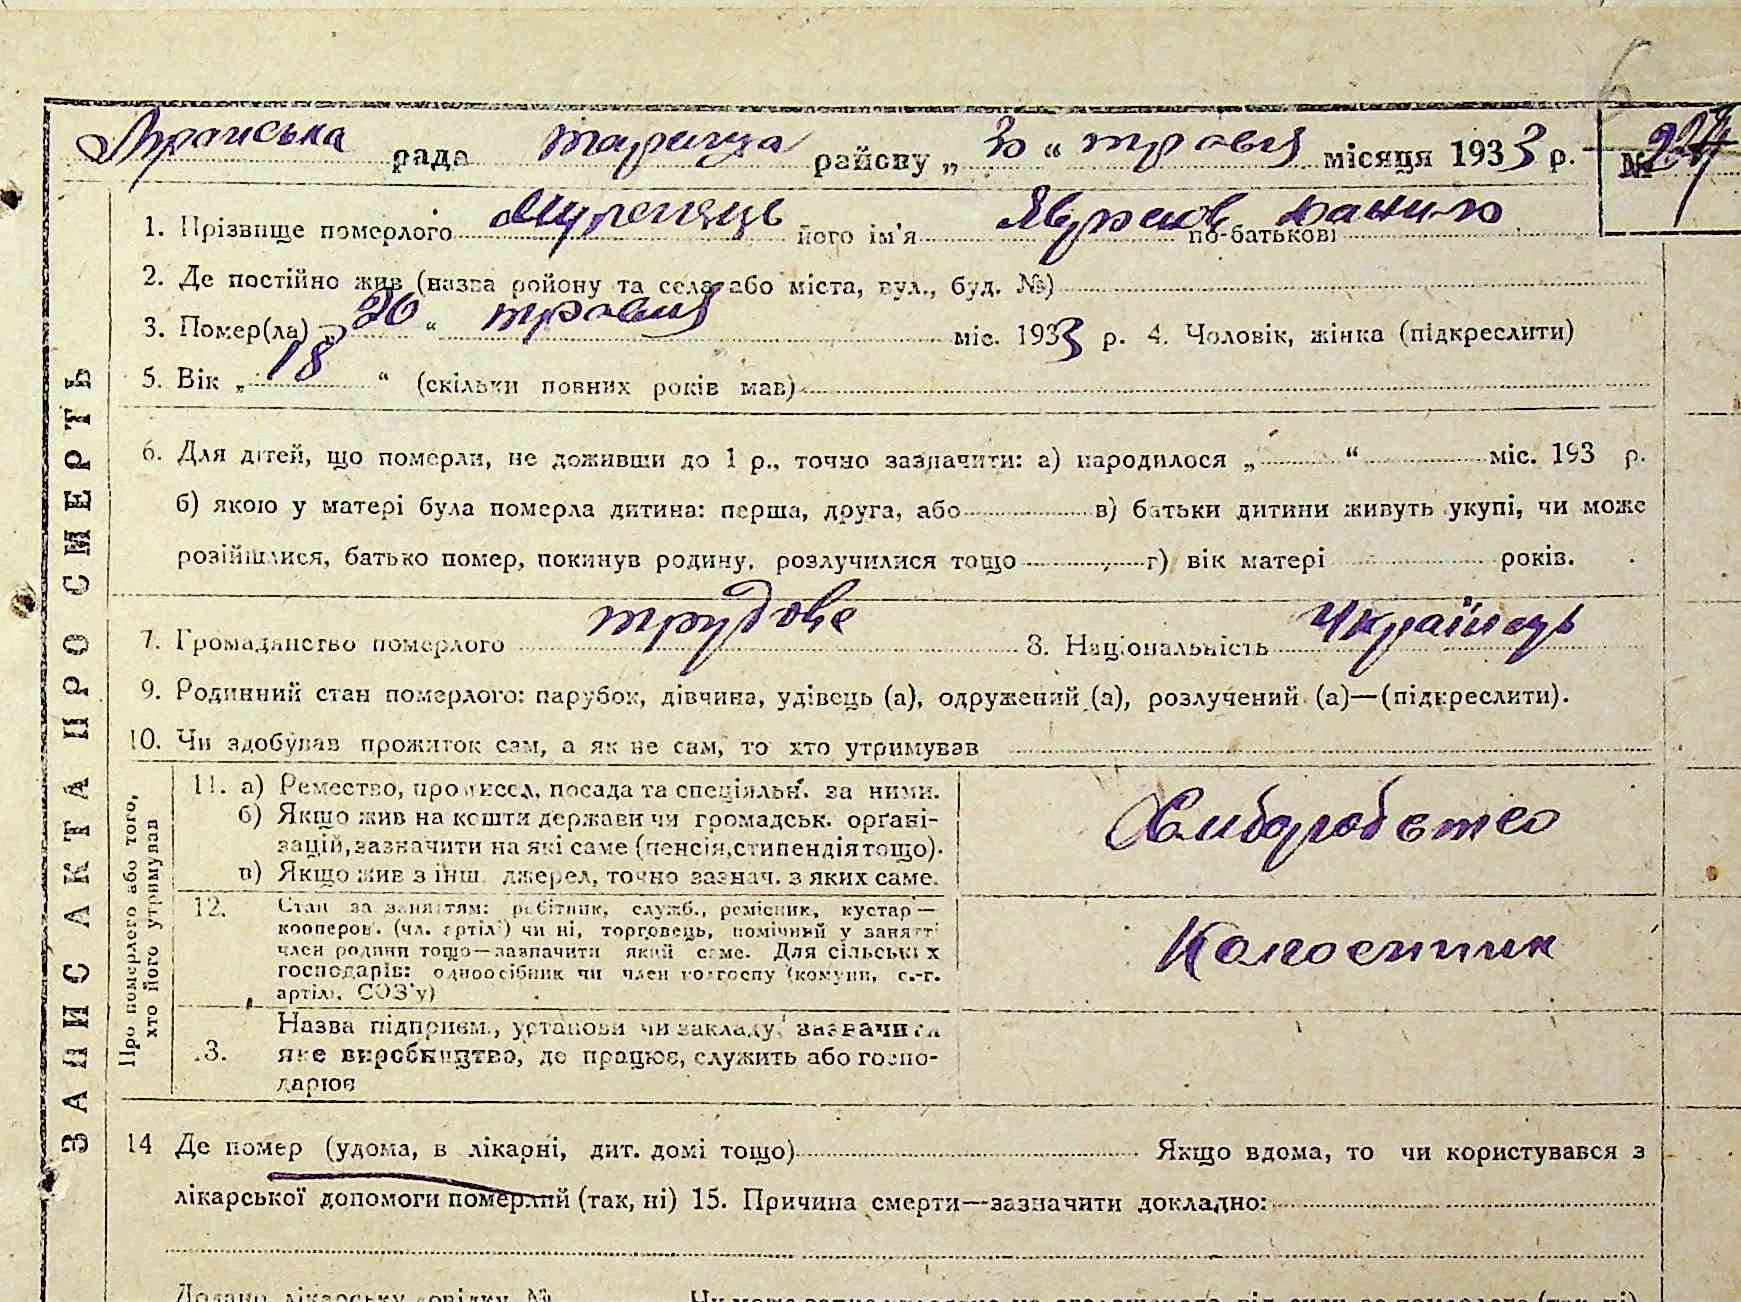 рада района „30“ травня місяця 1933 р. №
1. Прізвище померлого його ім'я по-батькові
2. Де постійно жив (назва району та села або міста, вул., буд. №)
3. Помер(ла) „20“ травня міс. 1933 р. 4. Чоловік, жінка (підкреслити)
5. Вік „18“ (скільки повних років мав)
6. Для дітей, що померли, не доживши до 1 р., точно зазначити: а) народилося „ “ міс. 193 р.
б) якою у матері була померла дитина: перша, друга, або в) батьки дитини живуть укупі, чи може
розійшлися, батько помер, покинув родину, розлучилися тощо г) вік матері років.
7. Громадянство померлого трудове 8. Національність Українець
9. Родинний стан померлого: парубок, дівчина, удівець (а), одружений (а), розлучений (а)—(підкреслити).
10. Чи здобував прожиток сам, а як не сам, то хто утримував
ЗАПИС АКТА ПРО СМЕРТЬ
Про померлого або того,
хто його утримував
11. а) Ремество, промисел, посада та спеціяльн. за ними.
б) Якщо жив на кошти держави чи громадськ. органі-
зацій, зазначити на які саме (пенсія, стипендія тощо).
в) Якщо жив з інш. джерел, точно зазнач. з яких саме.
Хлиборобство
12. Стан за заняттям: робітник, служб., ремісник, кустар—
кооперов. (чл. артілі) чи ні, торговець, помічний у занятті
член родини тощо—зазначити який саме. Для сільських
господарів: одноосібник чи член колгоспу (комуни, с.-г.
артілі, СОЗ'у)
Колгоспник
13. Назва підприєм., установи чи закладу, зазначити
яке виробництво, де працює, служить або госпо-
дарює
14 Де помер (удома, в лікарні, дит. домі тощо) Якщо вдома, то чи користувався з
лікарської допомоги померлий (так, ні) 15. Причина смерти—зазначити докладно: